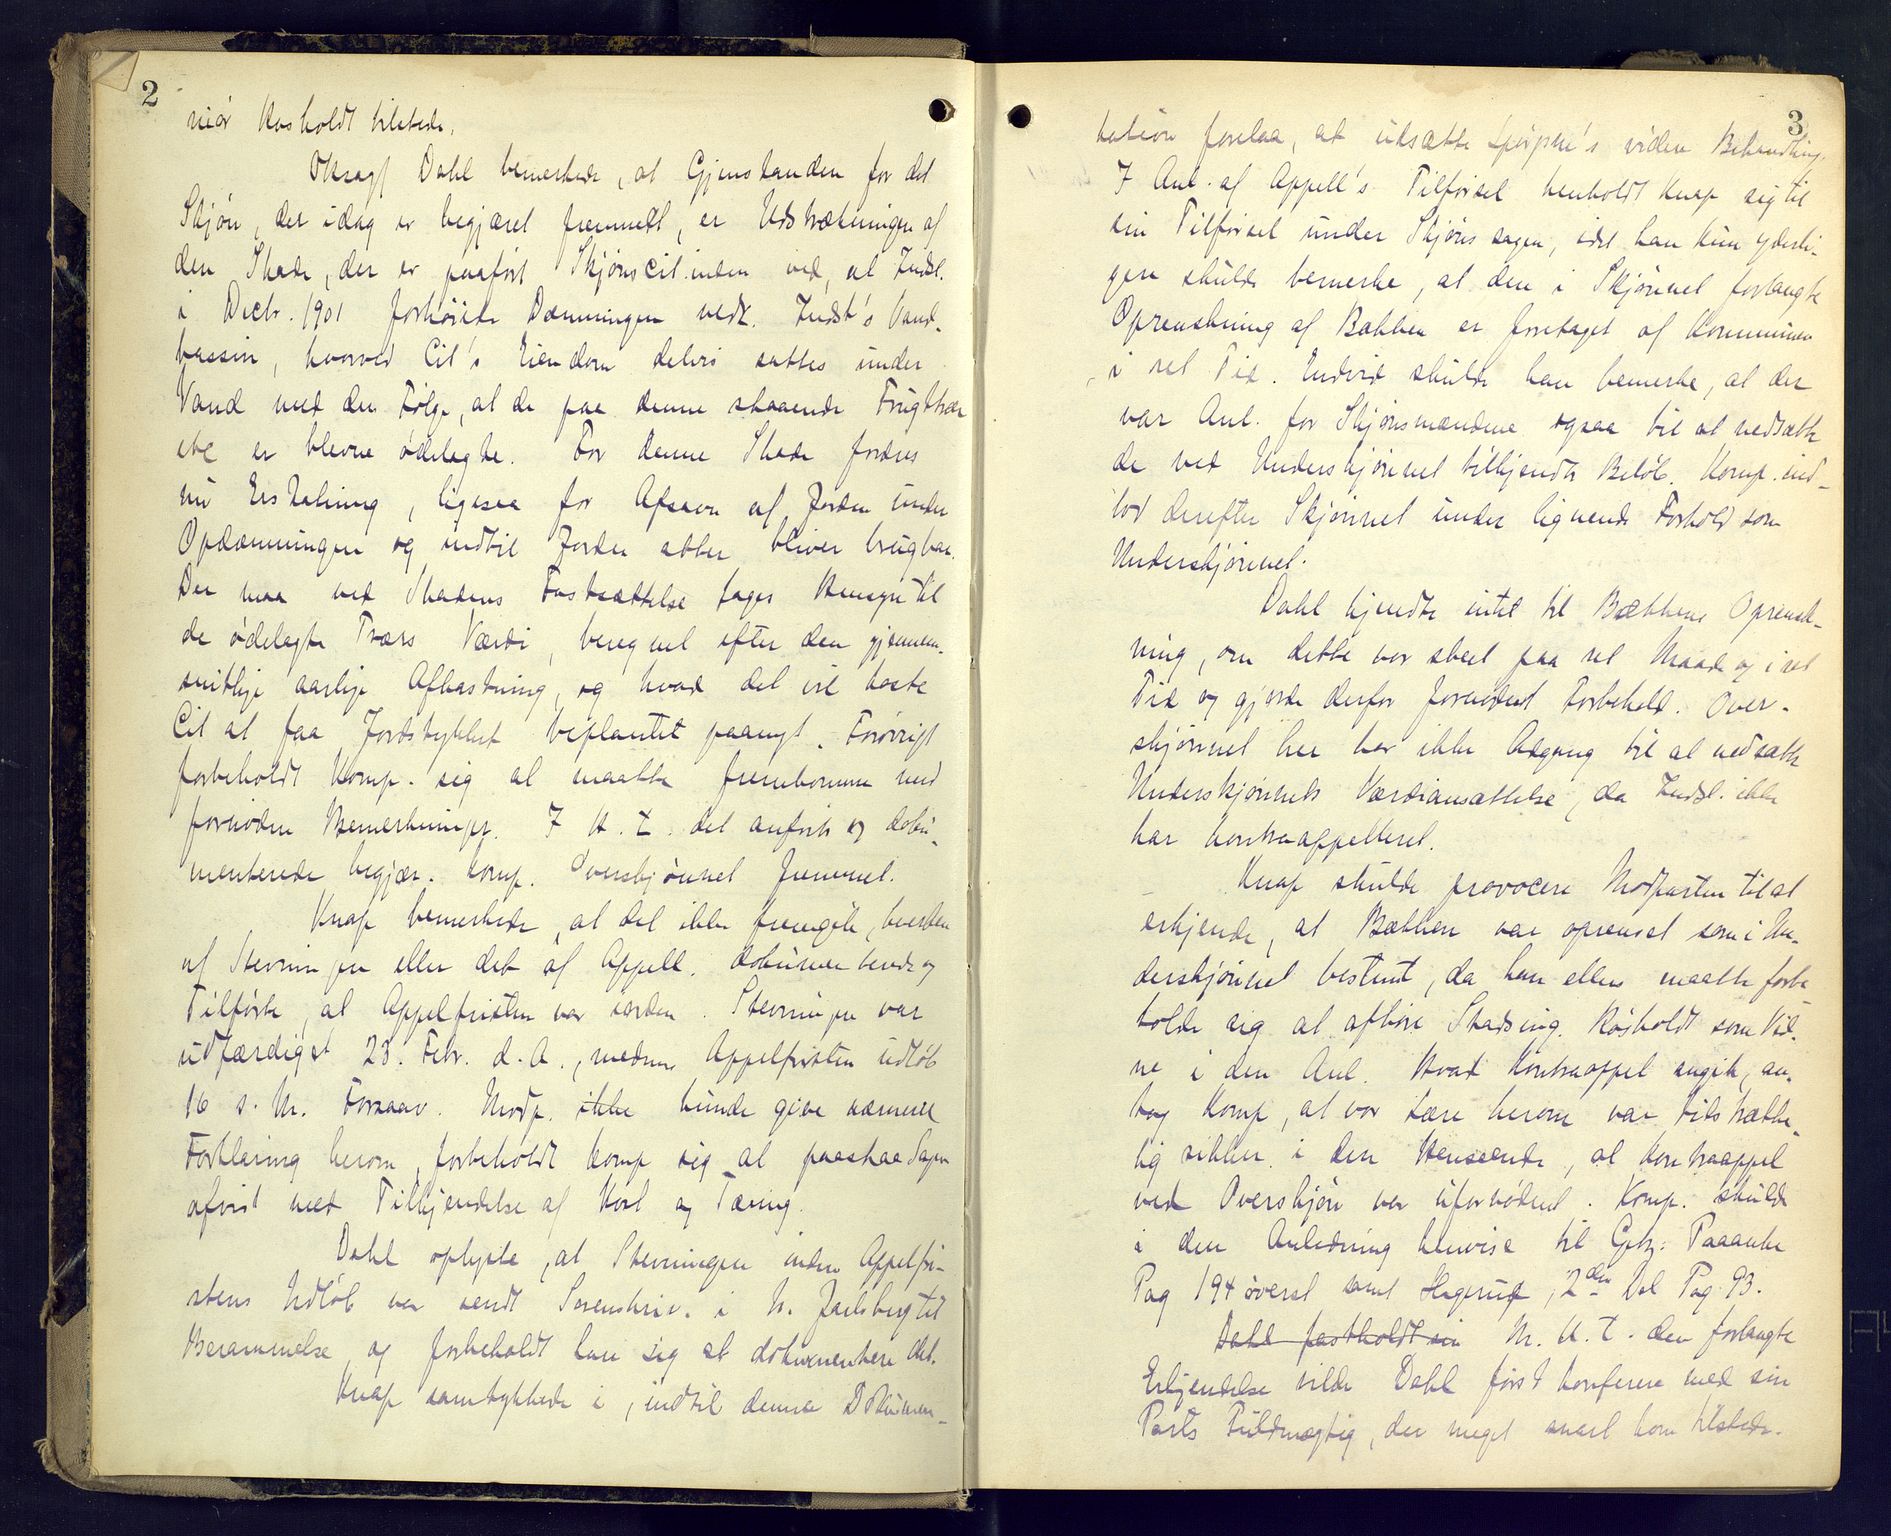 2
niør Kosholdt tilstede.
Oksagf. Dahl bemerkede, at Gjenstanden for det
Skjøn, der idag er begjæret fremmet, er Udstrækningen af
den Skade, der er paaført Skjønscit. inden ved, at Indst.
i Decbr. 1901 forhøiede Dæmningen vedk. Indst's Vand-
bassin, hvorved Cit's Eiendom delvis sattes under
Vand med den Følge, at de paa denne staaende Frugttrær
etc er blevne ødelagte. For denne Skade fordres
nu Erstatning, ligesaa for Afsavn af Jorden under
Opdæmningen og indtil Jorden atter bliver brugbar.
Der maa ved Skadens Fastsættelse tages Hensyn til
de ødelagte Træers Værdi, beregnet efter den gjennem-
snitlige aarlige Afkastning, og hvad det vil koste
Cit at faa Jordstykket beplantet paanyt. Forøvrigt
forbeholdt Komp. sig at maatte fremkomme med
fornødne Bemerkninger. I H. t. det anførte og doku-
menterede begjær. Komp. Overskjønnet fremmet.
Knap bemerkede, at det ikke fremgik, hverken
af Stevningen eller det af Appell. dokumenterede og
Tilførte, at Appelfristen var iorden. Stevningen var
udfærdiget 23. Febr. d. A., medens Appelfristen udløb
16 s. M. Forsaav. Modp. ikke kunde give nærmere
Forklaring herom, forbeholdt Komp sig at paastaa Sagen
afvist med Tilkjendelse af Kost og Tæring.
Dahl oplyste, at Stevningen inden Appelfri-
stens Udløb var sendt Sorenskriv. i N. Jarlsberg til
Berammelse og forbeholdt han sig at dokumentere det.
Knap samtykkede i, indtil denne Dokumen-
3
tation forelaa, at udsætte Spørgsm's videre Behandling.
I Anl. af Appell's Tilførsel henholdt Knap sig til
sin Tilførsel under Skjøns sagen, idet han kun yderli-
gere skulde bemerke, at den i Skjønnet forlangte
Oprenskning af Bækken er foretaget af Kommunen
i ret Tid. Endvid skulde han bemerke, at der
var Anl. for Skjønsmændene ogsaa til at nedsætte
de ved Underskjønnet tilkjendte Beløb. Komp. ind-
lod derefter Skjønnet under lignende Forhold som
Underskjønnet.
Dahl kjendte intet til Bækkens Oprensk-
ning, om dette var skeet paa ret Maade og i ret
Tid og gjorde derfor fornødent Forbehold. Over-
skjønnet her har ikke Adgang til at nedsætte
Underskjønnets Værdiansættelse, da Indst. ikke
har kontraappelleret.
Knap skulde provocere Modparten til at
erkjende, at Bækken var oprenset som i Un-
derskjønnet bestemt, da han ellers maatte forbe
holde sig at afhøre Stadsing. Kosholdt som Vid-
ne i den Anl. Hvad Kontraappel angik, an-
tog Komp, at vor Lære herom var tilstrække-
lig sikker i den Henseende, at Kontraappel
ved Overskjøn var ufornødent. Komp. skulde
i den Anledning henvise til Getz: Paaanke
Pag 194 øverst samt Hagerup, 2den Del Pag 93.
Dahl fastholdt sin M. H. t. den forlangte
Erkjendelse vilde Dahl først konferere med sin
Parts Fuldmægtig, der meget snart kom tilstede.